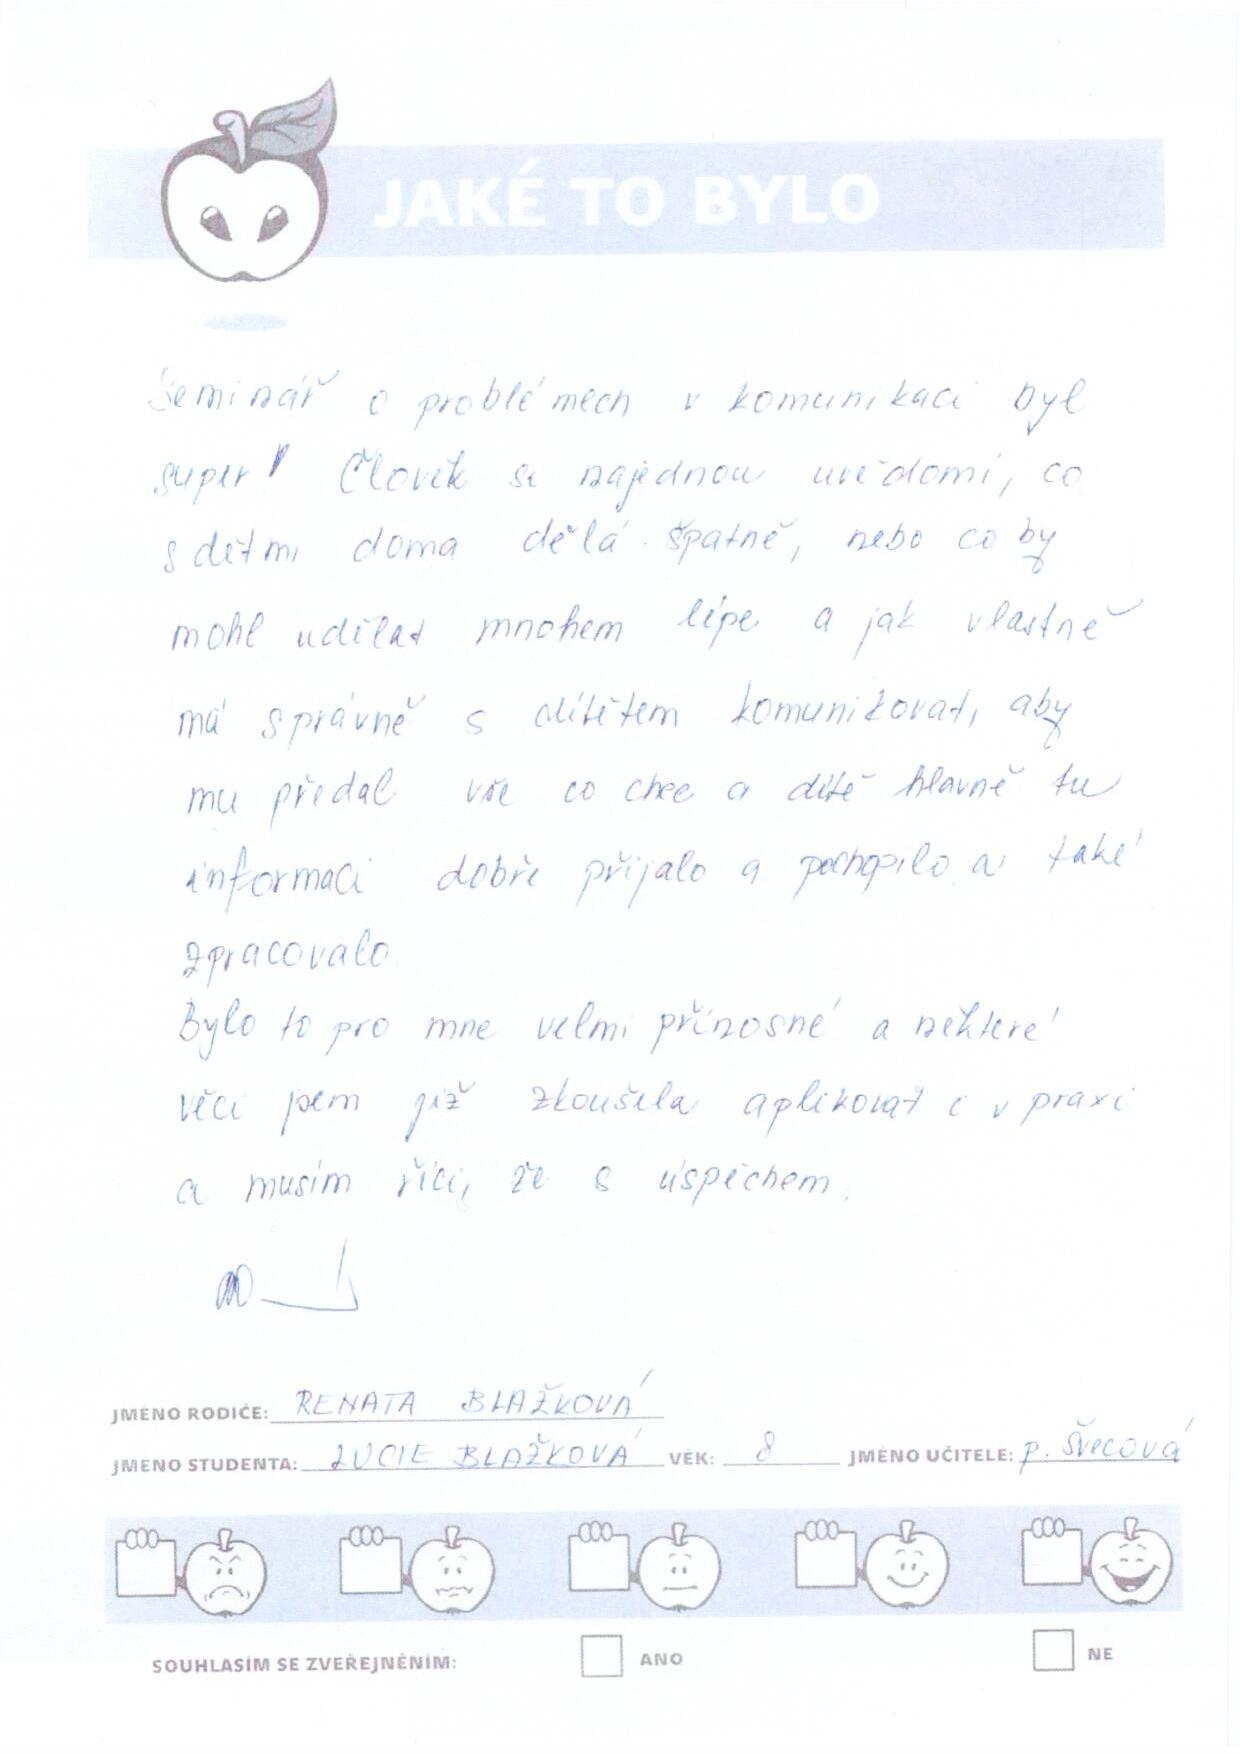 JAKÉ TO BYLO
Seminář o problémech v komunikaci byl
super! Člověk si najednou uvědomí, co
s dětmi doma dělá špatně, nebo co by
mohl udělat mnohem lépe a jak vlastně
má správně s dítětem komunikovat, aby
mu předal vše co chce a dítě hlavně tu
informaci dobře přijalo a pochopilo a také
zpracovalo.
Bylo to pro mne velmi přínosné a některé
věci jsem již zkoušela aplikovat i v praxi
a musím říci, že s úspěchem.
JMÉNO RODIČE: RENATA BLAŽKOVÁ
JMÉNO STUDENTA: LUCIE BLAŽKOVÁ VĚK: 8 JMÉNO UČITELE: p. ŠVECOVÁ
SOUHLASÍM SE ZVEŘEJNĚNÍM: ANO NE